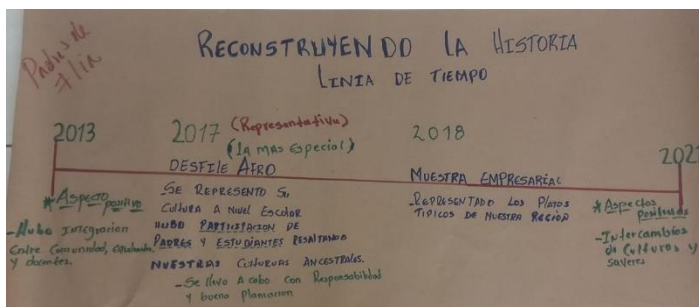 Padres de
flia
RECONSTRUYENDO LA HISTORIA
LINIA DE TIEMPO
2013
* Aspecto positivo
- Hubo Integracion
Entre Comunidad,
y docentes.
2017 (Representativa)
(La MAS Especial)
DESFILE AFRO
- SE REPRESENTO SU
CULTURA A NIVEL ESCOLAR
HUBO PARTICIPATION DE
PADRES Y ESTUDIANTES RESALTANDO
NUESTRAS CULTURAS ANCESTRALES.
- Se llevo A cabo con Responsabilidad
y buena Planiacion
2018
MUESTRA EMPRESARIAL
- REPRESENTADO LOS PLATOS
TIPICOS DE NUESTRA REGION
202
* Aspectos
positivos
- Intercambios
de Culturas y
saveres